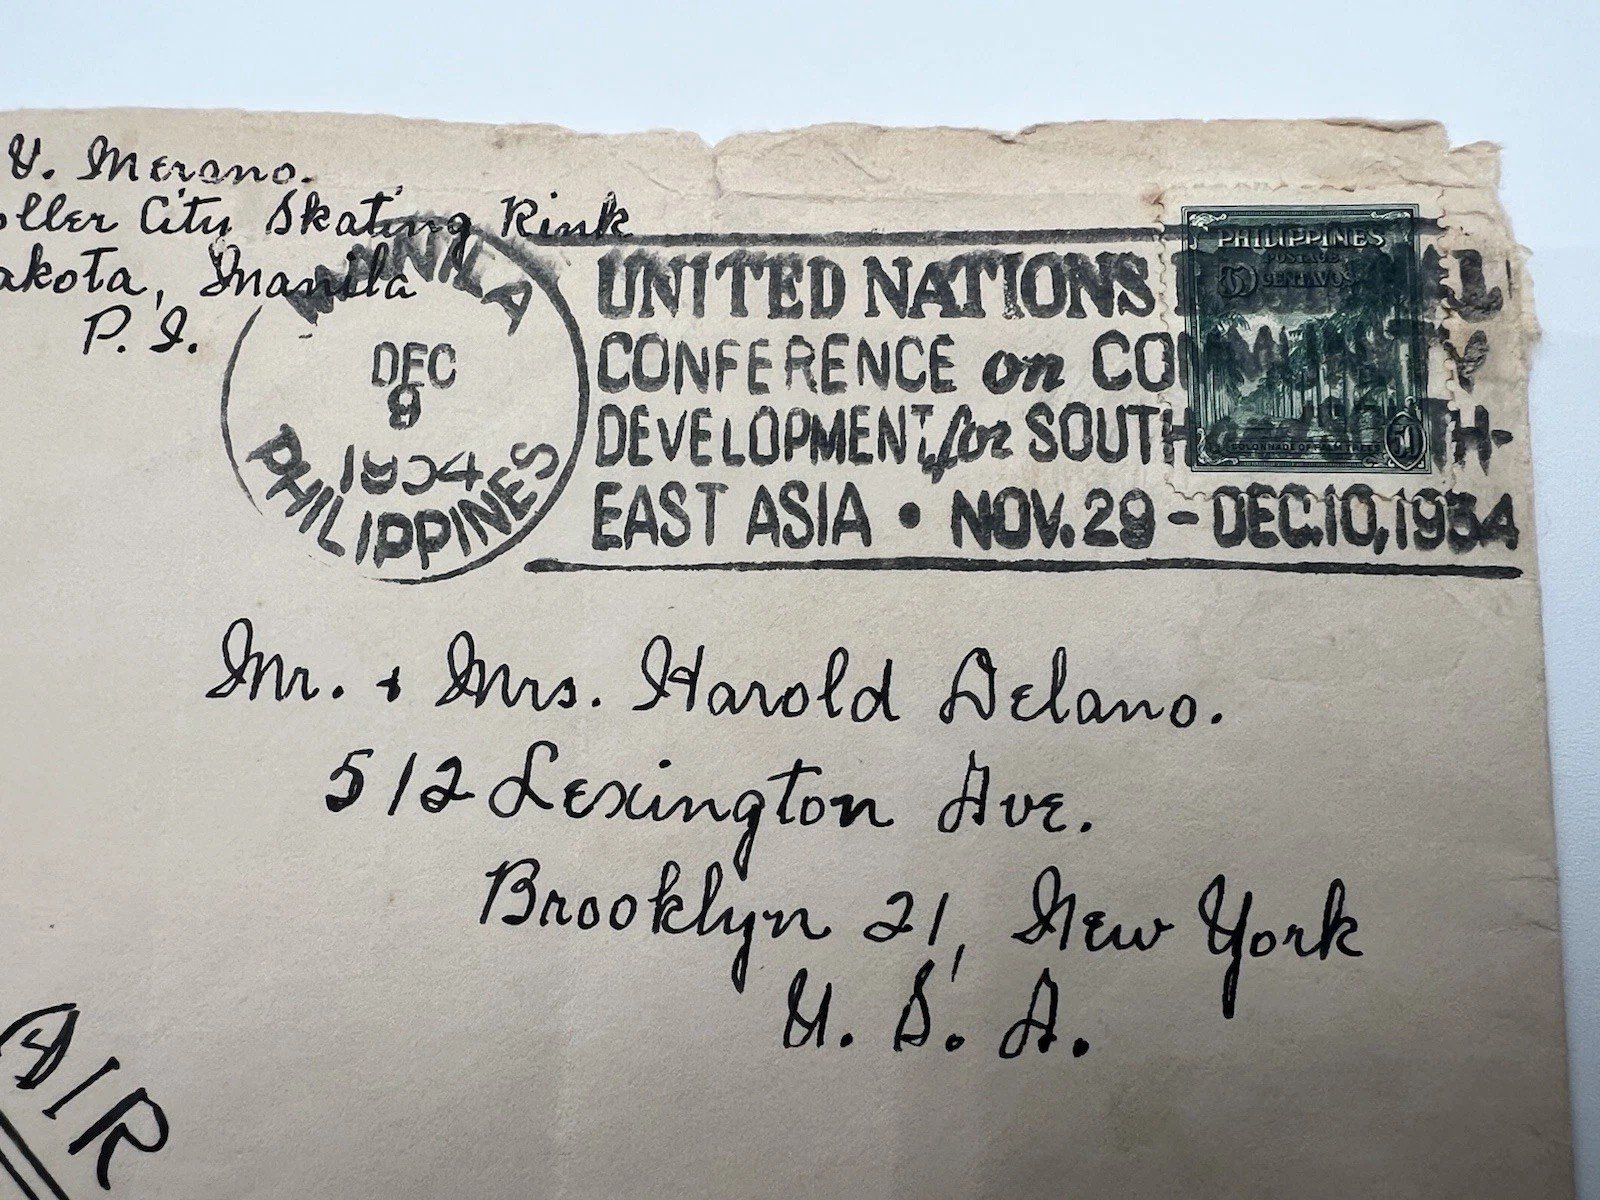 V. Merano.
oller City Skating Rink
akota, Manila
P. I.
MANILA
DEC
8
1954
PHILIPPINES
UNITED NATIONS
CONFERENCE on
DEVELOPMENT for SOUTH
EAST ASIA • NOV. 29 - DEC. 10, 1954
PHILIPPINES
POSTAGE
50 CENTAVOS
COLONNADE OF PALM TREES
50
Mr. + Mrs. Harold Delano.
512 Lexington Ave.
Brooklyn 21, New York
U. S. A.
AIR